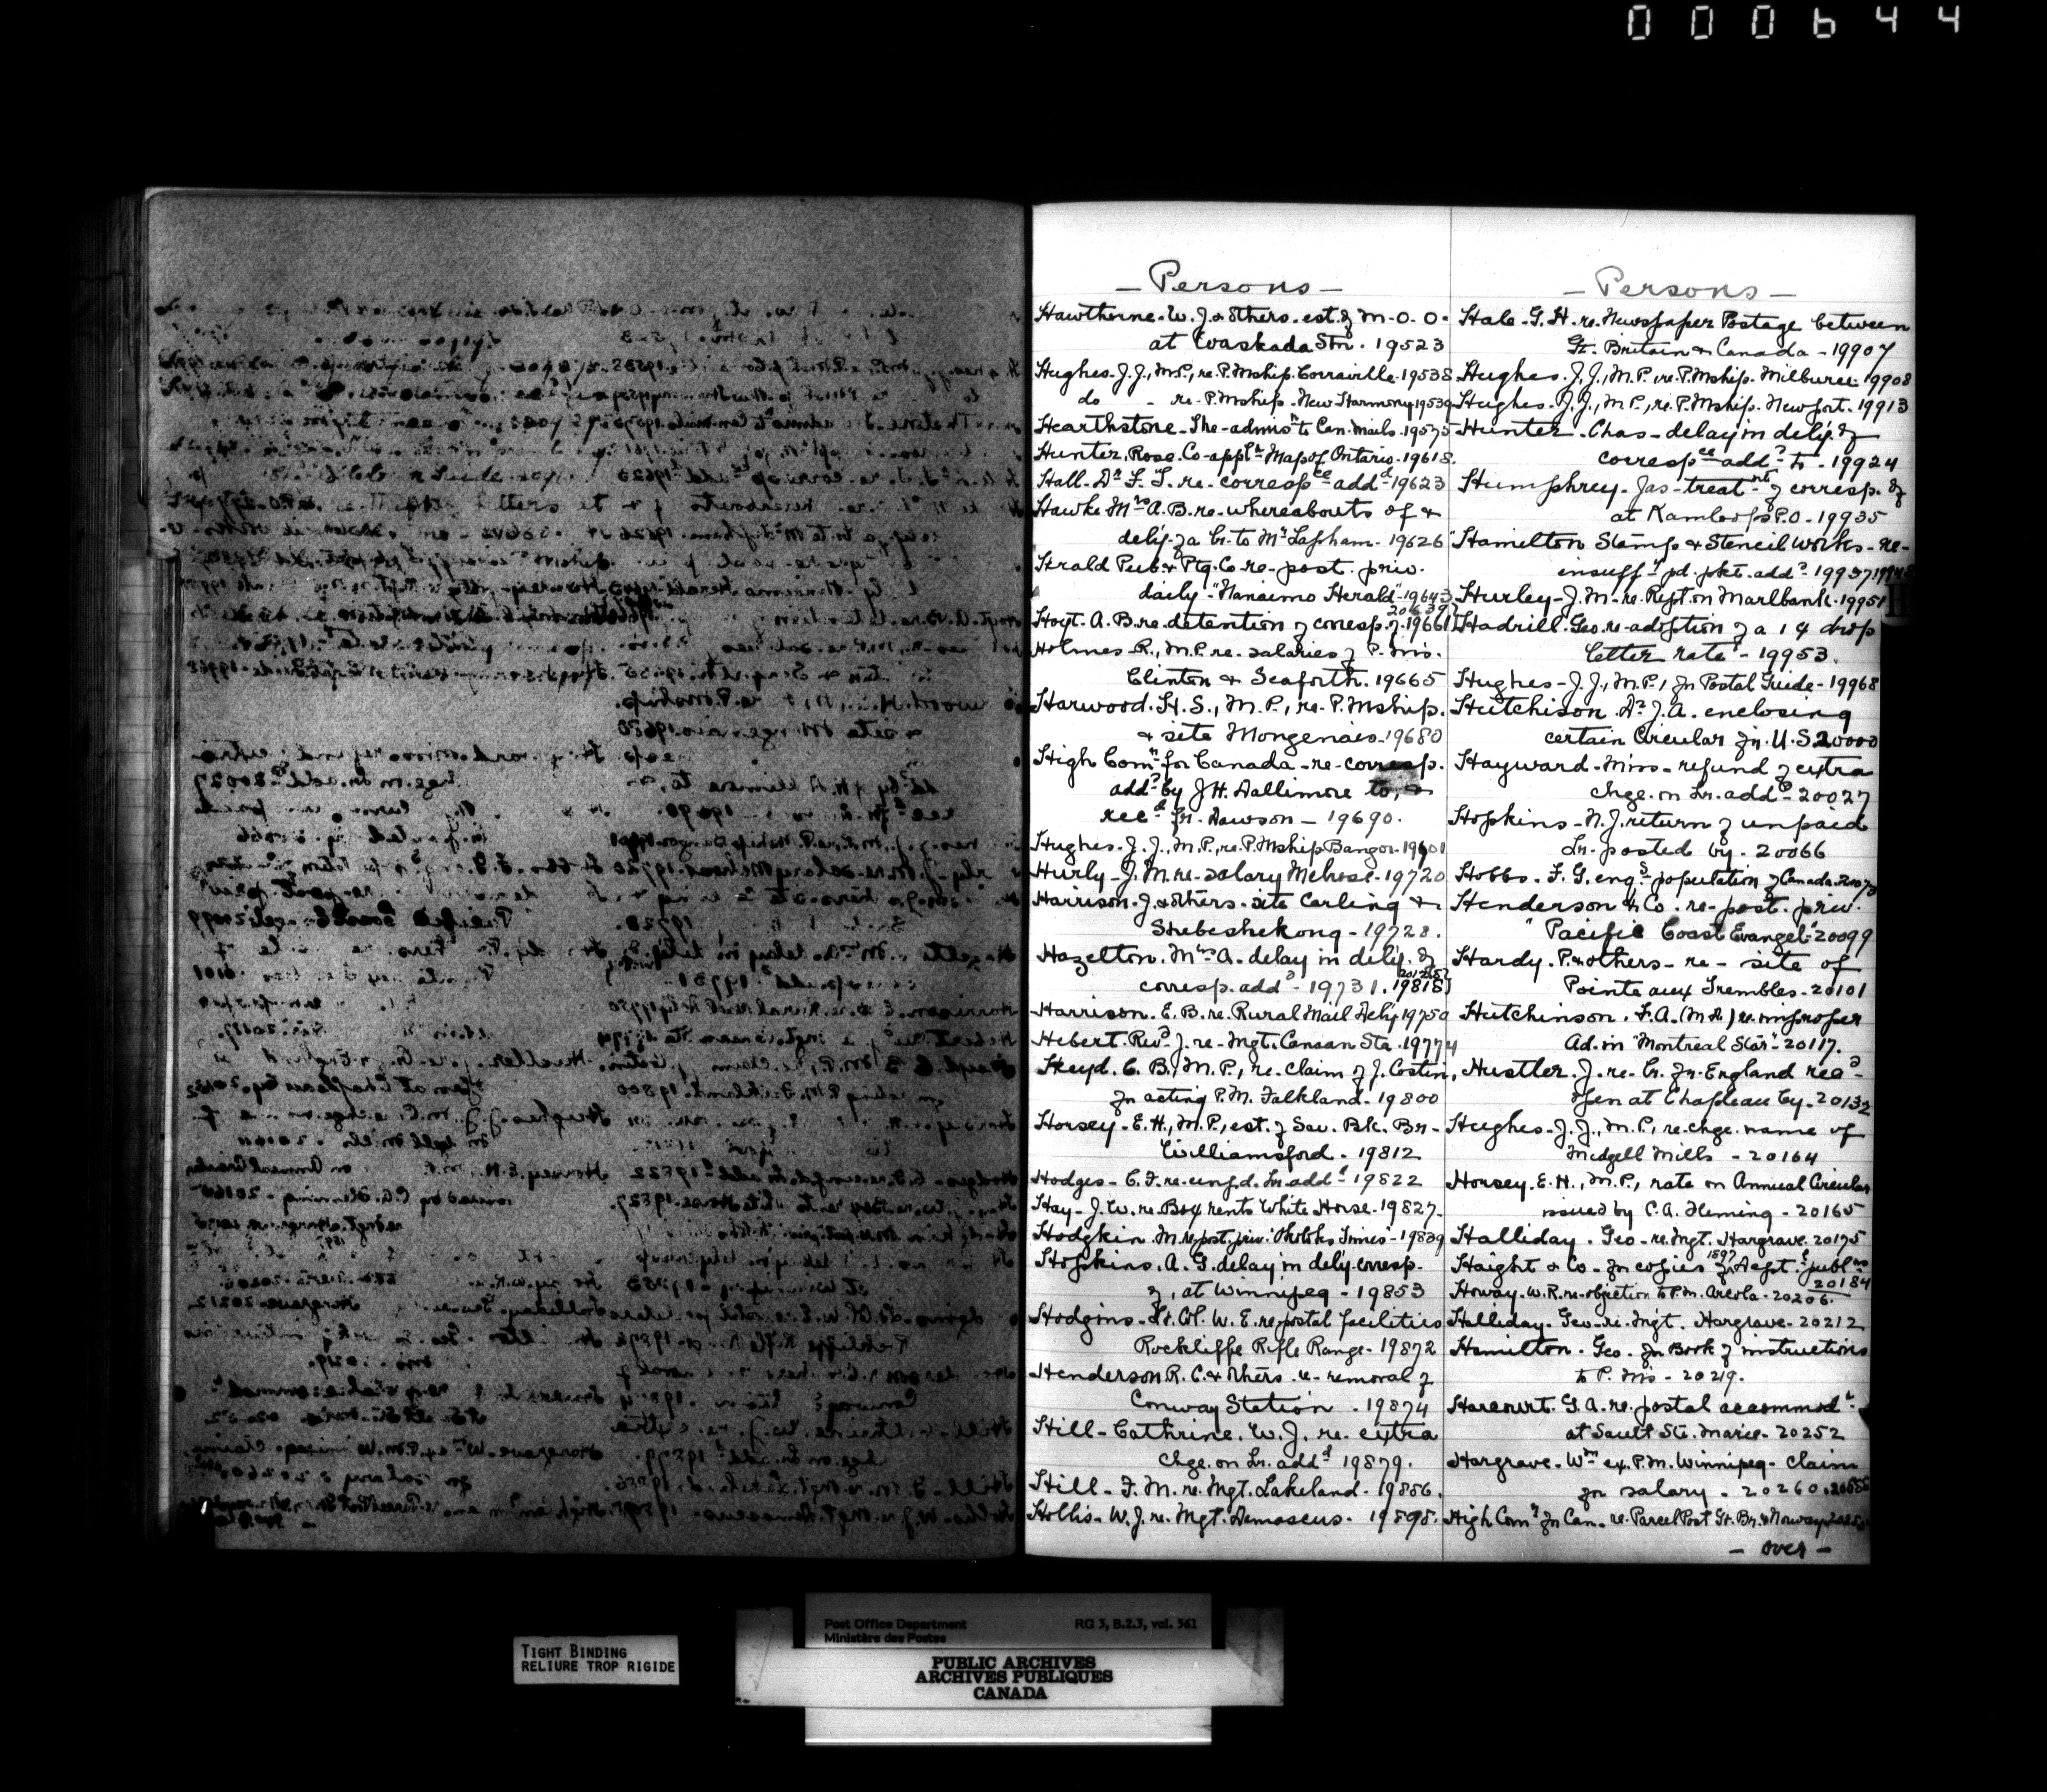 000644
- Persons -
Hawthorne. W. J. & others. est. of M. O. O.
at Waskada Stn. 19523
Hughes. J. J., M.P., re. P. Mship. Corraville. 19538
do - re. P. Mship. New Harmony 19539
Hearthstone - The - admisn to Can. Mails. 19575
Hunter, Rose Co - appln Map of Ontario. 19618.
Hall. Dr F. T. re. correspce addd 19623
Hawke Mrs A. B. re. whereabouts of &
dely. of a lr. to Mr Lapham. 19626
Herald Pub. & Ptg. Co. re. post. priv.
daily "Nanaimo Herald" 19643
Hoyt. A. B. re. detention of corresp. of. 19661
20639
Holmes. R., M.P. re. salaries of P. Ms.
Clinton & Seaforth. 19665
Harwood. H. S., M.P., re. P. Mship.
& site Mongenais. 19680
High Comr for Canada - re. corresp.
addd by J. H. Dallimore to, &
recd fr. Dawson - 19690.
Hughes. J. J., M.P., re. P. Mship Bangor. 19701
Hurly - J. M. re. salary Melrose. 19720
Harrison. J. & others. site Carling &
Shebeshekong - 19728.
Hazelton. Mrs A. delay in dely. of
corresp. addd - 19731. 19818
Harrison. E. B. re. Rural Mail Dely 19750
Hebert. Revd J. re. Mgt. Canaan Sta. 19774
Heyd. C. B., M.P., re. claim of J. Costin,
fr acting P. M. Falkland. 19800
Horsey - E. H., M.P., est. of Sav. Bk. Br.
Williamsford. 19812
Hodges - C. F. re. ungd. lr. addd 19822
Hay - J. W. re. Box rents White Horse. 19827.
Hodgkin. M. re. post. priv. "Okotoks Times" - 19839
Hopkins. A. G. delay in dely. corresp.
of, at Winnipeg - 19853
Hodgins. Lt. Col. W. E. re. postal facilities
Rockliffe Rifle Range. 19872
Henderson R. C. & others. re. removal of
Conway Station . 19874
Hill - Cathrine. W. J. re. extra
chge. on lr. addd 19879.
Hill - F. M. re. Mgt. Lakeland. 19886.
Hollis - W. J. re. Mgt. Damascus. 19898.
- Persons -
Hale. G. H. re. Newspaper Postage between
Gt. Britain & Canada - 19907
Hughes. J. J., M.P., re. P. Mship. Milburn. 19908
Hughes. J. J., M.P., re. P. Mship. Newport. 19913
Hunter. Chas - delay in dely. of
correspce addd to. 19924
Humphrey. Jas - treatmt of corresp. of
at Kamloops P.O. 19935
Hamilton Stamp & Stencil Works - re -
insufftly pd. pkt. addd 19937 19948
Hurley - J. M. re. Rept. on Marlbank. 19951
H
Hadrill. Geo. re. adoption of a 1¢ drop
letter rate - 19953.
Hughes - J. J., M.P., fr Postal Guide - 19968
Hutchison. Dr J. A. enclosing
certain Circular fr. U. S. 20000
Hayward - Miss - refund of extra
chge. on lr. addd 20027
Hopkins - N. J. return of unpaid
lr. posted by. 20066
Hobbs. F. G. engs population of Canada. 20073
Henderson & Co. re. post. priv.
"Pacific Coast Evangel" 20099
Hardy. P. & others - re - site of
Pointe aux Trembles - 20101
Hutchinson. F. A. (M.D.) re. improper
Ad. in "Montreal Star" - 20117.
Hustler. J. re. lr. fr. England recd
open at Chapleau by. 20132
Hughes. J. J., M.P., re. chge. name of
Midgell Mills - 20164
Horsey. E. H., M.P., rate on Annual Circular
issued by C. A. Fleming - 20165
Halliday. Geo - re. Mgt. Hargrave. 20175
Haight & Co. fr copies of 1897 Dept. publns
20184
Howay. W. R. re. objection to P. M. Arcola. 20206.
Halliday. Geo - re. Mgt. Hargrave. 20212
Hamilton. Geo. fr Book of instructions
to P. Ms - 20219.
Harcourt. G. A. re. postal accommodn
at Sault Ste. Marie. 20252
Hargrave. Wm ex. P. M. Winnipeg - claim
fr salary. 20260.
High Comr fr Can. re. Parcel Post Gt. Br. & Norway
- over -
TIGHT BINDING
RELIURE TROP RIGIDE
Post Office Department
Ministère des Postes
RG 3, B.2.3, vol. 561
PUBLIC ARCHIVES
ARCHIVES PUBLIQUES
CANADA